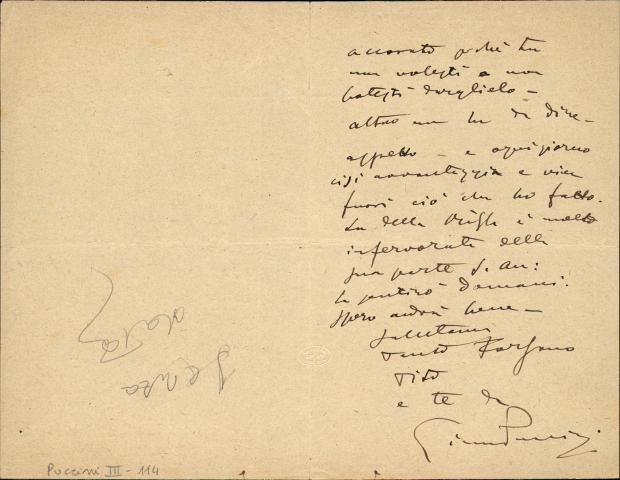 accorato poichè tu
non volesti o non
potesti dirglielo -
altro non ho da dire -
aspetto - e ogni giorno
ci si avvantaggia e vien
fuori ciò che ho fatto.
La della
è molto
infervorata della
sua parte
la sentirò domani.
Spero andrà bene -
Salutami
tanto Forzano
Tito
e te da
Giacomo Puccini
senza
data
Puccini III - 114